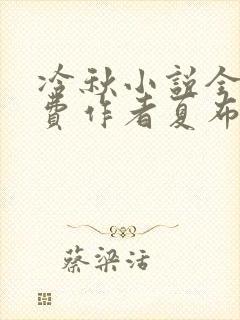 冷秋小说全
费作者夏布
蔡梁活